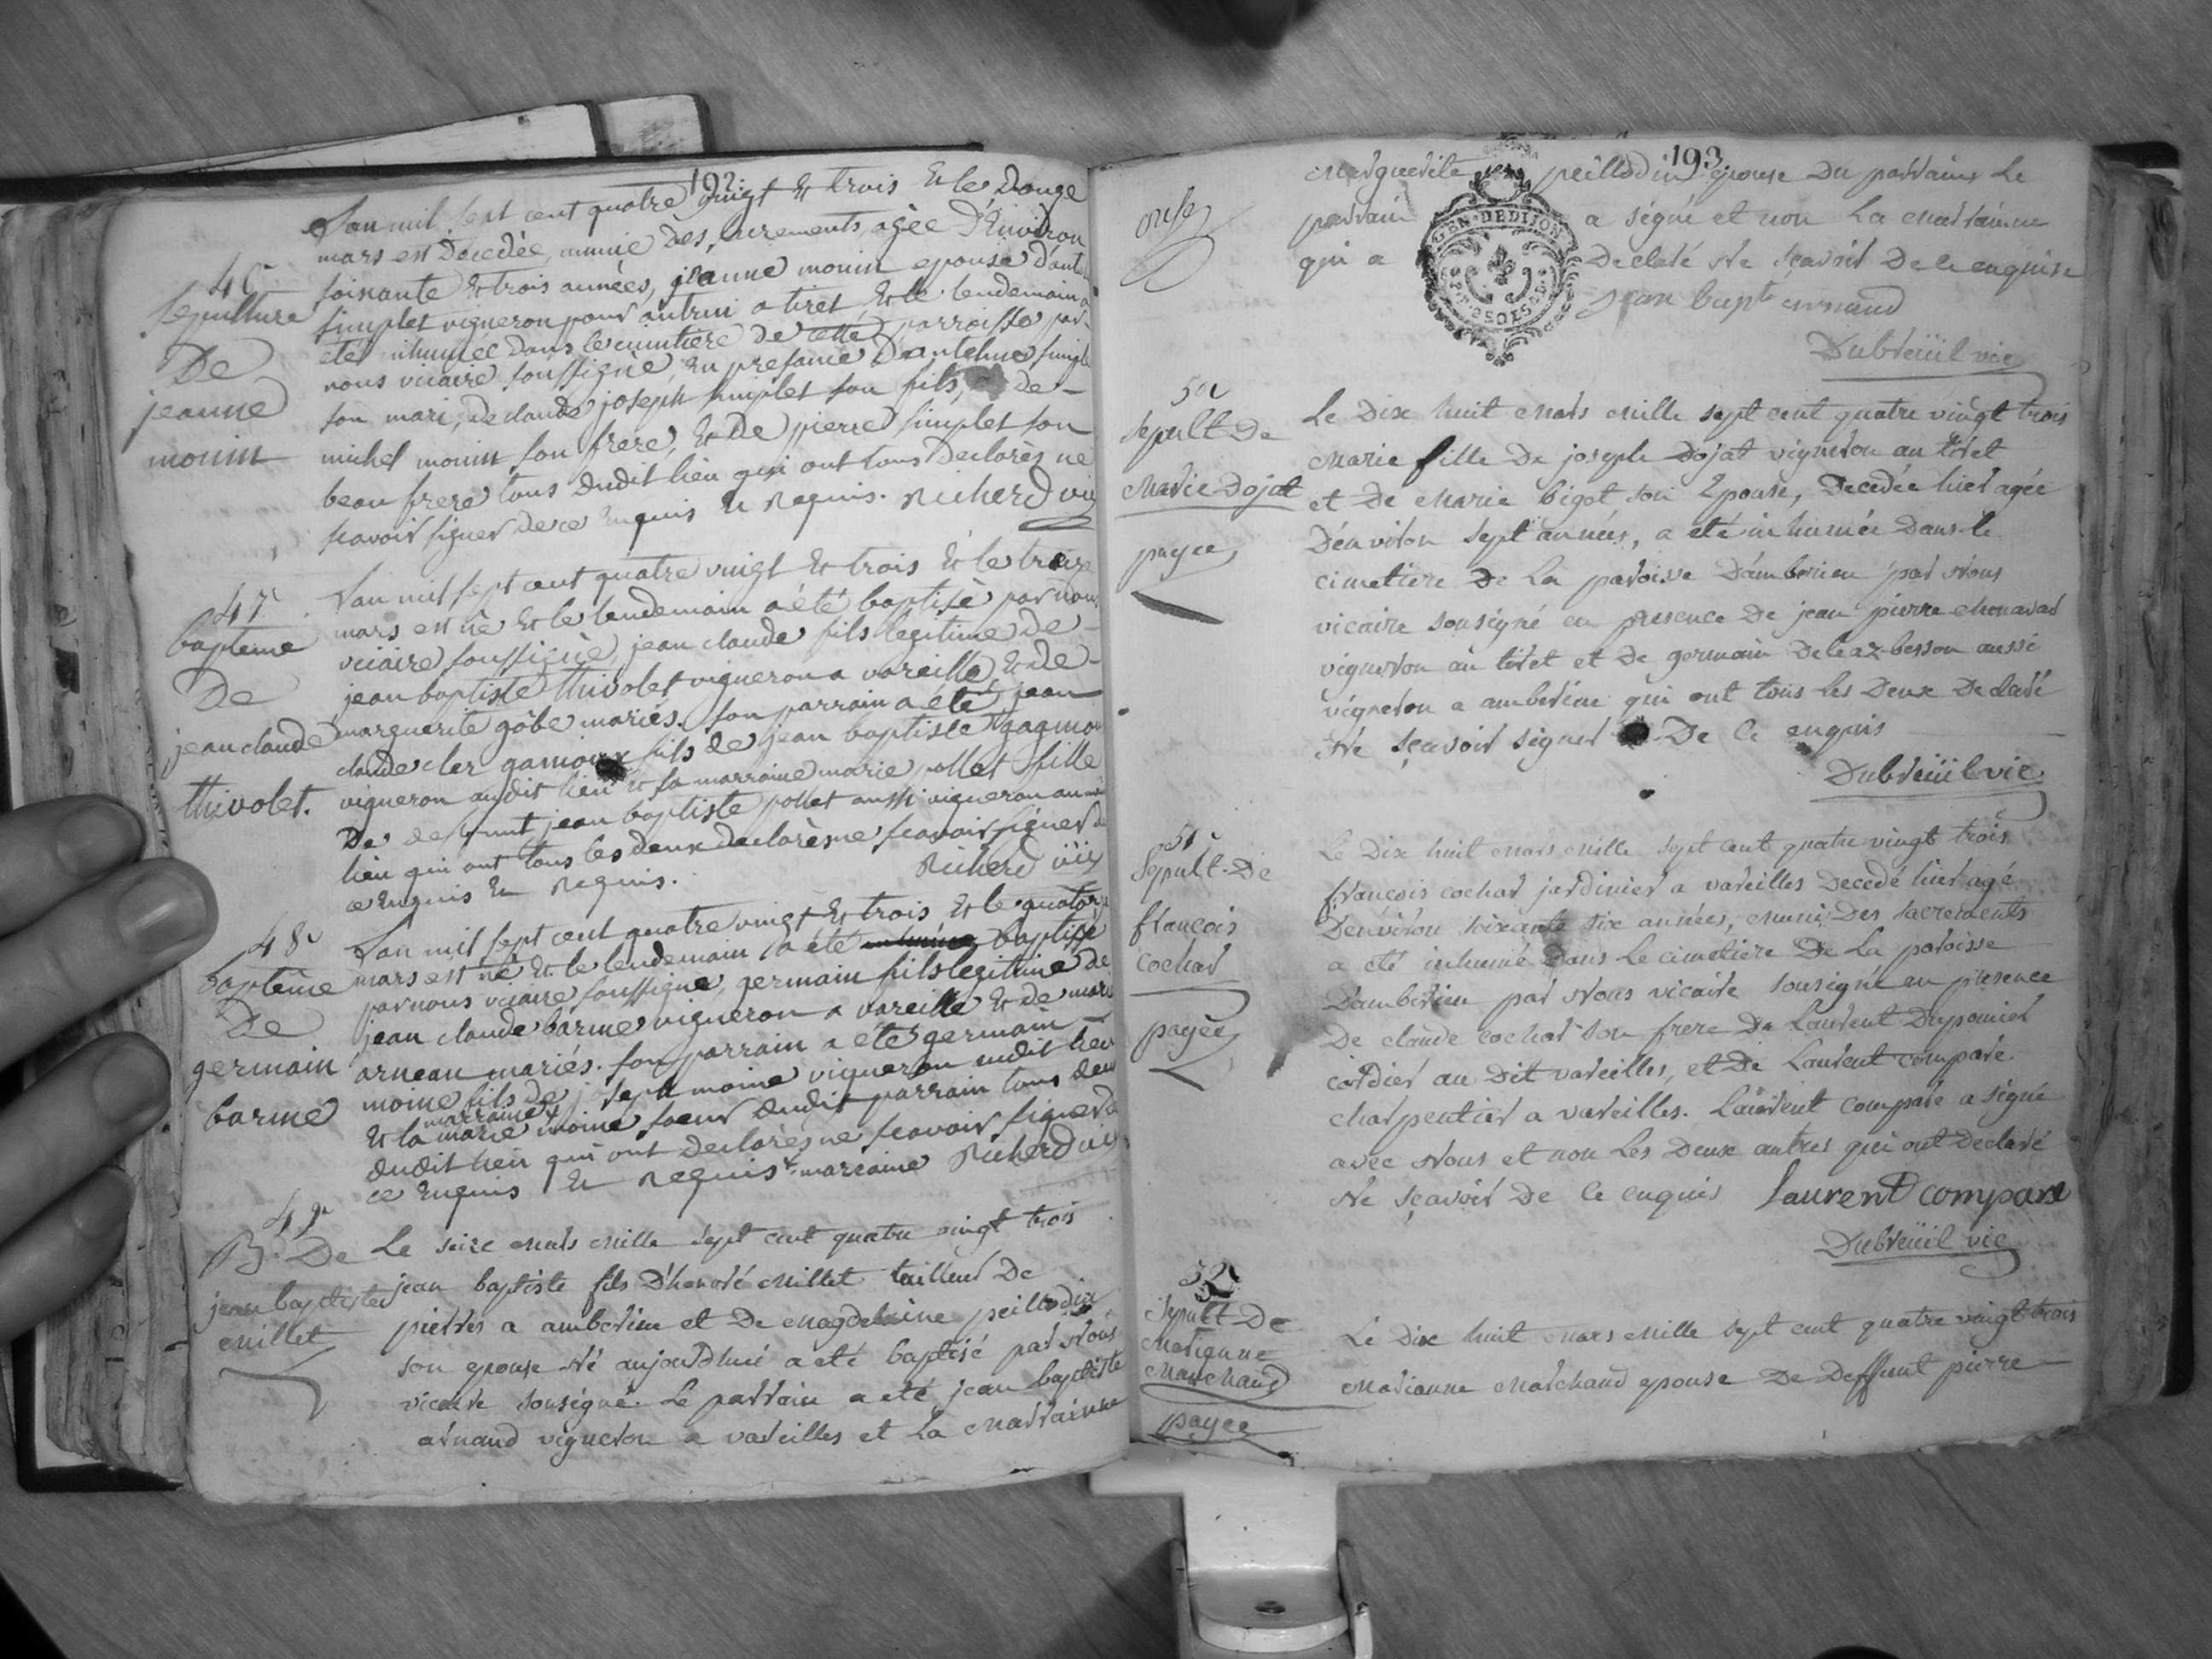 192.
46e
Sepulture
De
jeanne
monin
L'an mil sept cent quatre vingt & trois & le Douze
mars est Decedée, munie Des sacrements, agée D'Environ
soixante & trois années, jeanne monin epouse D'ant
simplet vigneron pour autrui a tiret, & le lendemain a
eté inhumée Dans le cimitiere De cette parroisse par
nous vicaire soussigné, En presance D'antelme simple
son mari, De claude joseph simplet son fils, de
michel monin son frere, & De pierre simplet son
beau frere tous Dudit lieu qui ont tous Declarès ne
scavoir signer De ce Enquis & Requis. Richerd vic
47e
bapteme
De
jean claude
thivolet.
L'an mil sept cent quatre vingt & trois & le treize
mars est né & le lendemain a été baptisè par nous
vicaire soussignè, jean claude fils legitime De
jean baptiste thivolet vigneron a vareille, & de
marguerite gôbe mariés. son parrain a été jean
claude cler fils de jean baptiste gagmon
vigneron audit lieu & sa marraine marie pollet fille
De defunt jean baptiste pollet aussi vigneron au
lieu qui ont tous les deux declarès ne scavoir signer de
ce Enquis & Requis. Richerd vic
48e
bapteme
De
germain
barme
L'an mil sept cent quatre vingt & trois & le quatorze
mars est né & le lendemain a été baptisé
par nous vicaire soussigné, germain fils legitime de
jean claude barme vigneron a vareille & de marie
arneau mariés. son parrain a été germain
moine fils de joseph moine vigneron audit lieu
marraine
& la marie moine soeur dudit parrain tous deux
dudit lieu qui ont declarès ne scavoir signer de
ce Enquis & Requis marraine Richerd vic
49e
B. De
jean baptiste
Millet
Le seize Mars Mille sept cent quatre vingt trois
jean baptiste fils D'honoré Millet tailleur De
pierres a amberieu et De Magdelaine peillodin
son epouse Né aujourdhui a eté baptisé par Nous
vicaire sousigné. Le parrain a eté jean baptiste
arnaud vigneron a vareilles et La Marrainne
193
Marguerite peillodin epouse Du parrain Le
parrain a signé et non La Marrainne
qui a Declaré Ne sçavoir De ce enquise
GEN. DE DIJON
jean bapte arnaud
Dubreüil vic
50e
Sepult. De
Marie Dojat
payee
Le Dix huit Mars Mille sept cent quatre vingt trois
Marie fille De joseph Dojat vigneron au tiret
et De Marie bigot son Epouse, Decedée hier agée
D'énviron sept années, a eté inhumée Dans le
cimetiere De La paroisse D'amberieu par Nous
vicaire sousigné en presence De jean pierre Chenavar
vigneron au tiret et De germain Deleaz-besson aussi
vigneron a amberieu qui ont tous Les Deux Declaré
Ne sçavoir signer De ce enquis
Dubreüil vic
51e
Sepult. De
françois
cochar
payée
Le Dix huit Mars Mille sept cent quatre vingt trois
françois cochar jardinier a vareilles Decedé hier agé
D'environ soixante six années, Muni Des sacrements
a eté inhumé Dans Le cimetiere De La paroisse
D'amberieu par Nous vicaire sousigné en presence
De claude cochar son frere De Laurent Dupomier
cordier au Dit vareilles, et De Laurent compare
charpentier a vareilles. Laurent compare a signé
avec Nous et non Les Deux autres qui ont Declaré
Ne sçavoir De ce enquis Laurent compare
Dubreüil vic
52e
Sepult. De
Marianne
Marchand
payee
Le Dix huit Mars Mille sept cent quatre vingt trois
Marianne Marchand epouse De Deffunt pierre